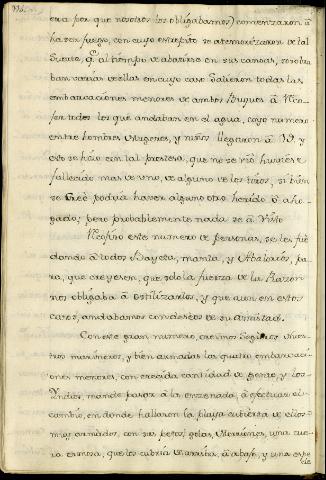 era por que nosotros los obligabamos) comenzaron à
hacer fuego, con cuyo estrepito se atemorizaron de tal
Suerte, q.e al tiempo de abatirse en sus canoas, zozobra
ban varias de ellas en cuyo caso Salieron todas las
embarcaciones menores de ambos Buques à
todos los que andaban en el agua, cuyo numero
entre hombres Mugeres, y niños llegaron à
esto se hizo con tal presteza, que no se vió huviese
fallecido mas de uno, de alguno de los tiros, si bien
se creè podria haver alguno otro herido ò aho-
gado; pero probablemente nada se à Visto
este numero de personas, se les fué
dando à todos Bayeta, manta, y Abalorios, pa
ra, que creyesen, que solo la fuerza de la Razon
nos obligaba à ostilizarlos, y que aun en estos
casos, andabamos con deseos de su amistad.
Con este gran numero, creimos Seguros nues-
tros marineros, y bien armadas las quatro embarcaci
ones menores, con crecida cantidad de gente, y los
Yndios, mandè pasar à la ensenada, à efectuar el
cambio, en donde hallaron la playa cubierta de ellos
muy armados, con sus petos, golas, una cue
ra famosa, que los cubria de arriba à abajo, y una espe
cie